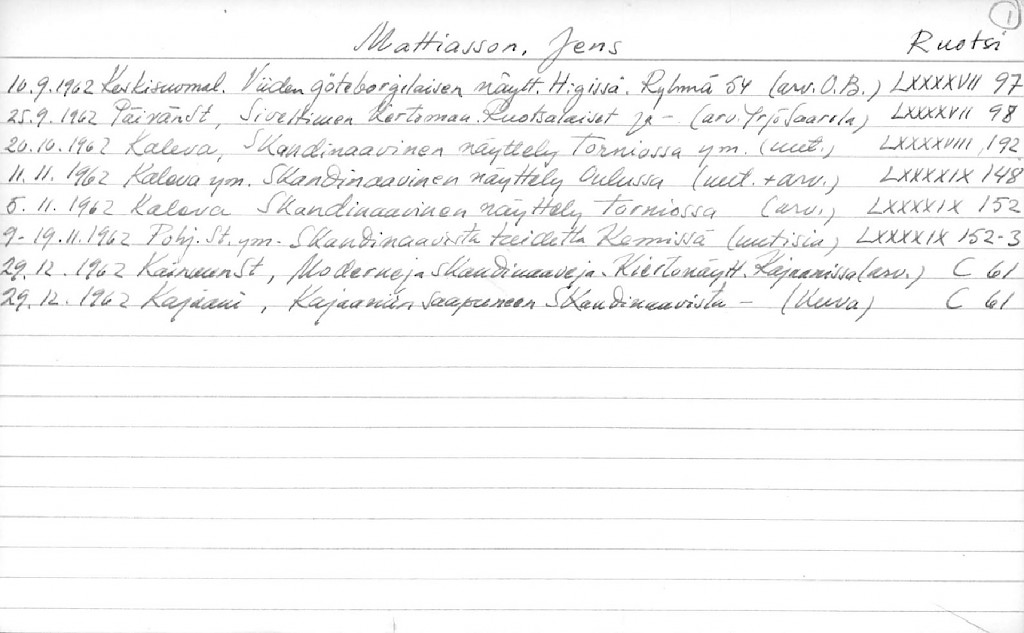 1
Mattiasson, Jens Ruotsi
16.9.1962 Keskisuomal. Viiden göteborgilaisen näytt. H:gissä. Ryhmä 54 (arv. O.B.) LXXXXVII 97
25.9.1962 Päivän St, Siveltimen kertomaa. Ruotsalaiset ja - (arv. Yrjö Saarela) LXXXXVII 98
20.10.1962 Kaleva, Skandinaavinen näyttely Torniossa ym. (uut.) LXXXXVIII, 192
11.11.1962 Kaleva ym. Skandinaavinen näyttely Oulussa (uut. + arv.) LXXXXIX 148
5.11.1962 Kaleva Skandinaavinen näyttely Torniossa (arv.) LXXXXIX 152
9-19.11.1962 Pohj. St. ym. Skandinaavista taidetta Kemissä (uutisia) LXXXXIX 152-3
29.12.1962 Kainuun St, Moderneja skandinaaveja. Kiertonäytt. Kajaanissa (arv.) C 61
29.12.1962 Kajaani, Kajaaniin saapuneen Skandinaavista - (Kuva) C 61